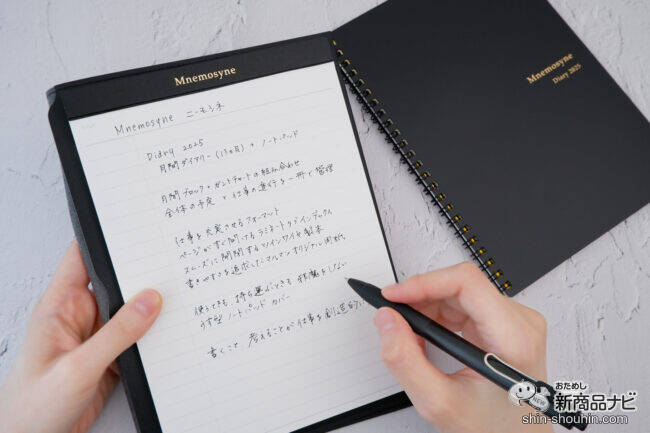 Mnemosyne
Mnemosyne ニーモシネ
Diary 2025
月間ダイアリー(13ヵ月)+ノートパッド
月間ブロック+ガントチャートの組み合わせ
全体の予定と仕事の進行を一冊で管理
仕事を充実させるフォーマット
ページがすぐ開けるラミネートタブインデックス
スムーズに開閉するツインワイヤ製本
書きやすさを追求したマルマンオリジナル用紙
使うときも、持ち運ぶときも邪魔をしない
うす型ノートパッドカバー
書くこと 考えることが仕事を創造的に
Mnemosyne
Diary 2025
NEW
おためし
新商品ナビ
shin-shouhin.com